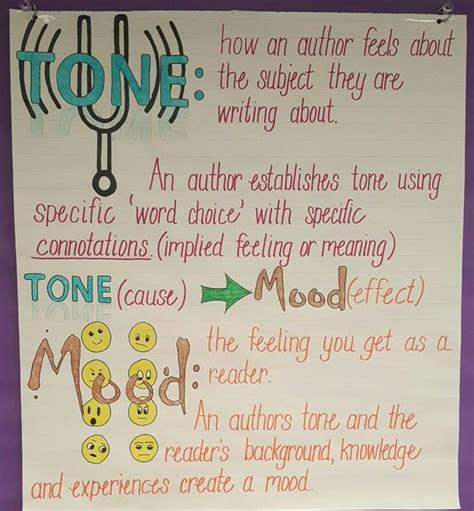 TONE: how an author feels about
the subject they are
writing about.
An author establishes tone using
specific 'word choice' with specific
connotations. (implied feeling or meaning)
TONE (cause) → Mood (effect)
Mood: the feeling you get as a
reader.
An authors tone and the
reader's background, knowledge
and experiences create a mood.